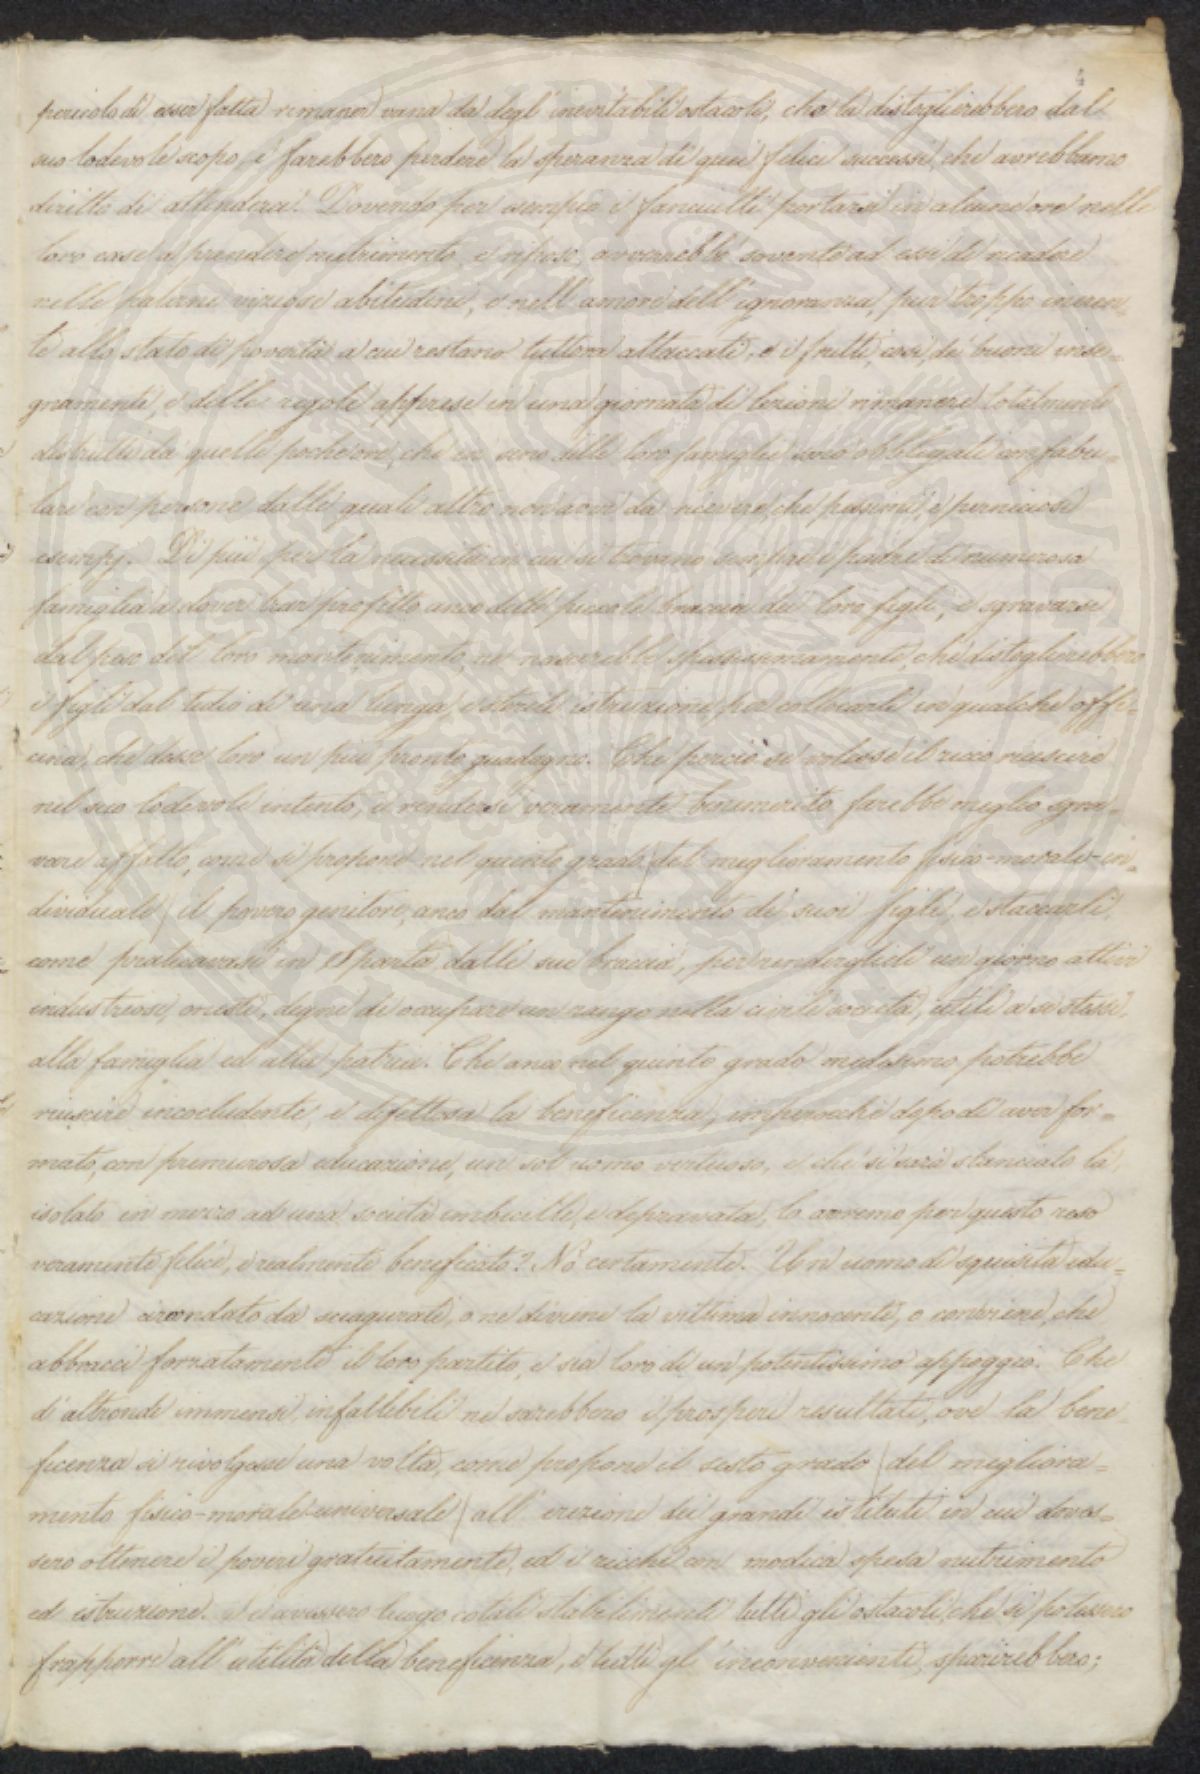 4
pericolo di esser fatta rimaner vana da degl' inevitabili ostacoli, che la distoglierebbero dal
suo lodevole scopo, e farebbero perdere la speranza di quei felici successi, che avrebbamo
diritto di attenderci. Dovendo per esempio i fanciulli portarsi in alcune ore nelle
loro case a prendere nutrimento, e riposo, avverrebbe sovente ad essi di ricadere
nelle paterne viziose abitudini, e nell' amore dell' ignoranza, pur troppo ineren-
te allo stato di povertà a cui restano tuttora attaccati, e i frutti, così, de' buoni inse-
gnamenti, e delle regole apprese in una giornata di lezioni rimanere totalmente
distrutti da quelle poche ore, che in seno delle loro famiglie sono obbligati confabu-
lare con persone dalle quali altro non aver da ricevere, che pessimi, e perniciosi
esempj. Di più per la necessità in cui si trovano sempre i padri di numerosa
famiglia a dover trar profitto anco delle piccole braccia dei loro figli, e sgravarsi
dal peso del loro mantenimento, ne nascerebbe spessissimamente, che distoglierebbero
i figli dal tedio di una lunga, e sterile istruzione, per collocarli in qualche offi-
cina, che dasse loro un più pronto guadagno. Che perciò se volesse il ricco riuscire
nel suo lodevole intento, e rendersi veramente benemerito farebbe meglio sgra-
vare affatto, come si propone nel quinto grado (del miglioramento fisico-morale-in-
dividuale) il povero genitore, anco dal mantenimento de' suoi figli, e staccarli,
come praticavasi in Sparta, dalle sue braccia, per renderglieli un giorno attivi
industriosi, onesti, degni di occupare un rango nella civile società, utili a se stessi,
alla famiglia ed alla patria. Che anco nel quinto grado medesimo potrebbe
riuscire incocludente, e difettosa la beneficenza, imperocchè dopo di aver for-
mato, con premurosa educazione, un sol uomo virtuoso, e che si sarà slanciato là,
isolato in mezzo ad una società imbecille, e depravata, lo avremo per questo reso
veramente felice, e realmente beneficato? Nò certamente. Un uomo di squisita edu-
cazione circondato da sciagurati, o ne diviene la vittima innocente, o conviene, che
abbracci forzatamente il loro partito, e sia loro di un potentissimo appoggio. Che
d'altronde immensi, infallibili ne sarebbero i prosperi resultati, ove la bene-
ficenza si rivolgesse una volta, come propone il sesto grado (del migliora-
mento fisico-morale-universale) all' erezione dei grandi istituti in cui doves-
sero ottenere i poveri gratuitamente, ed i ricchi con modica spesa nutrimento
ed istruzione. Se avessero luogo cotali stabilimenti tutti gli ostacoli, che si potessero
frapporre all' utilità della beneficenza, e tutti gl' inconvenienti, sparirebbero;